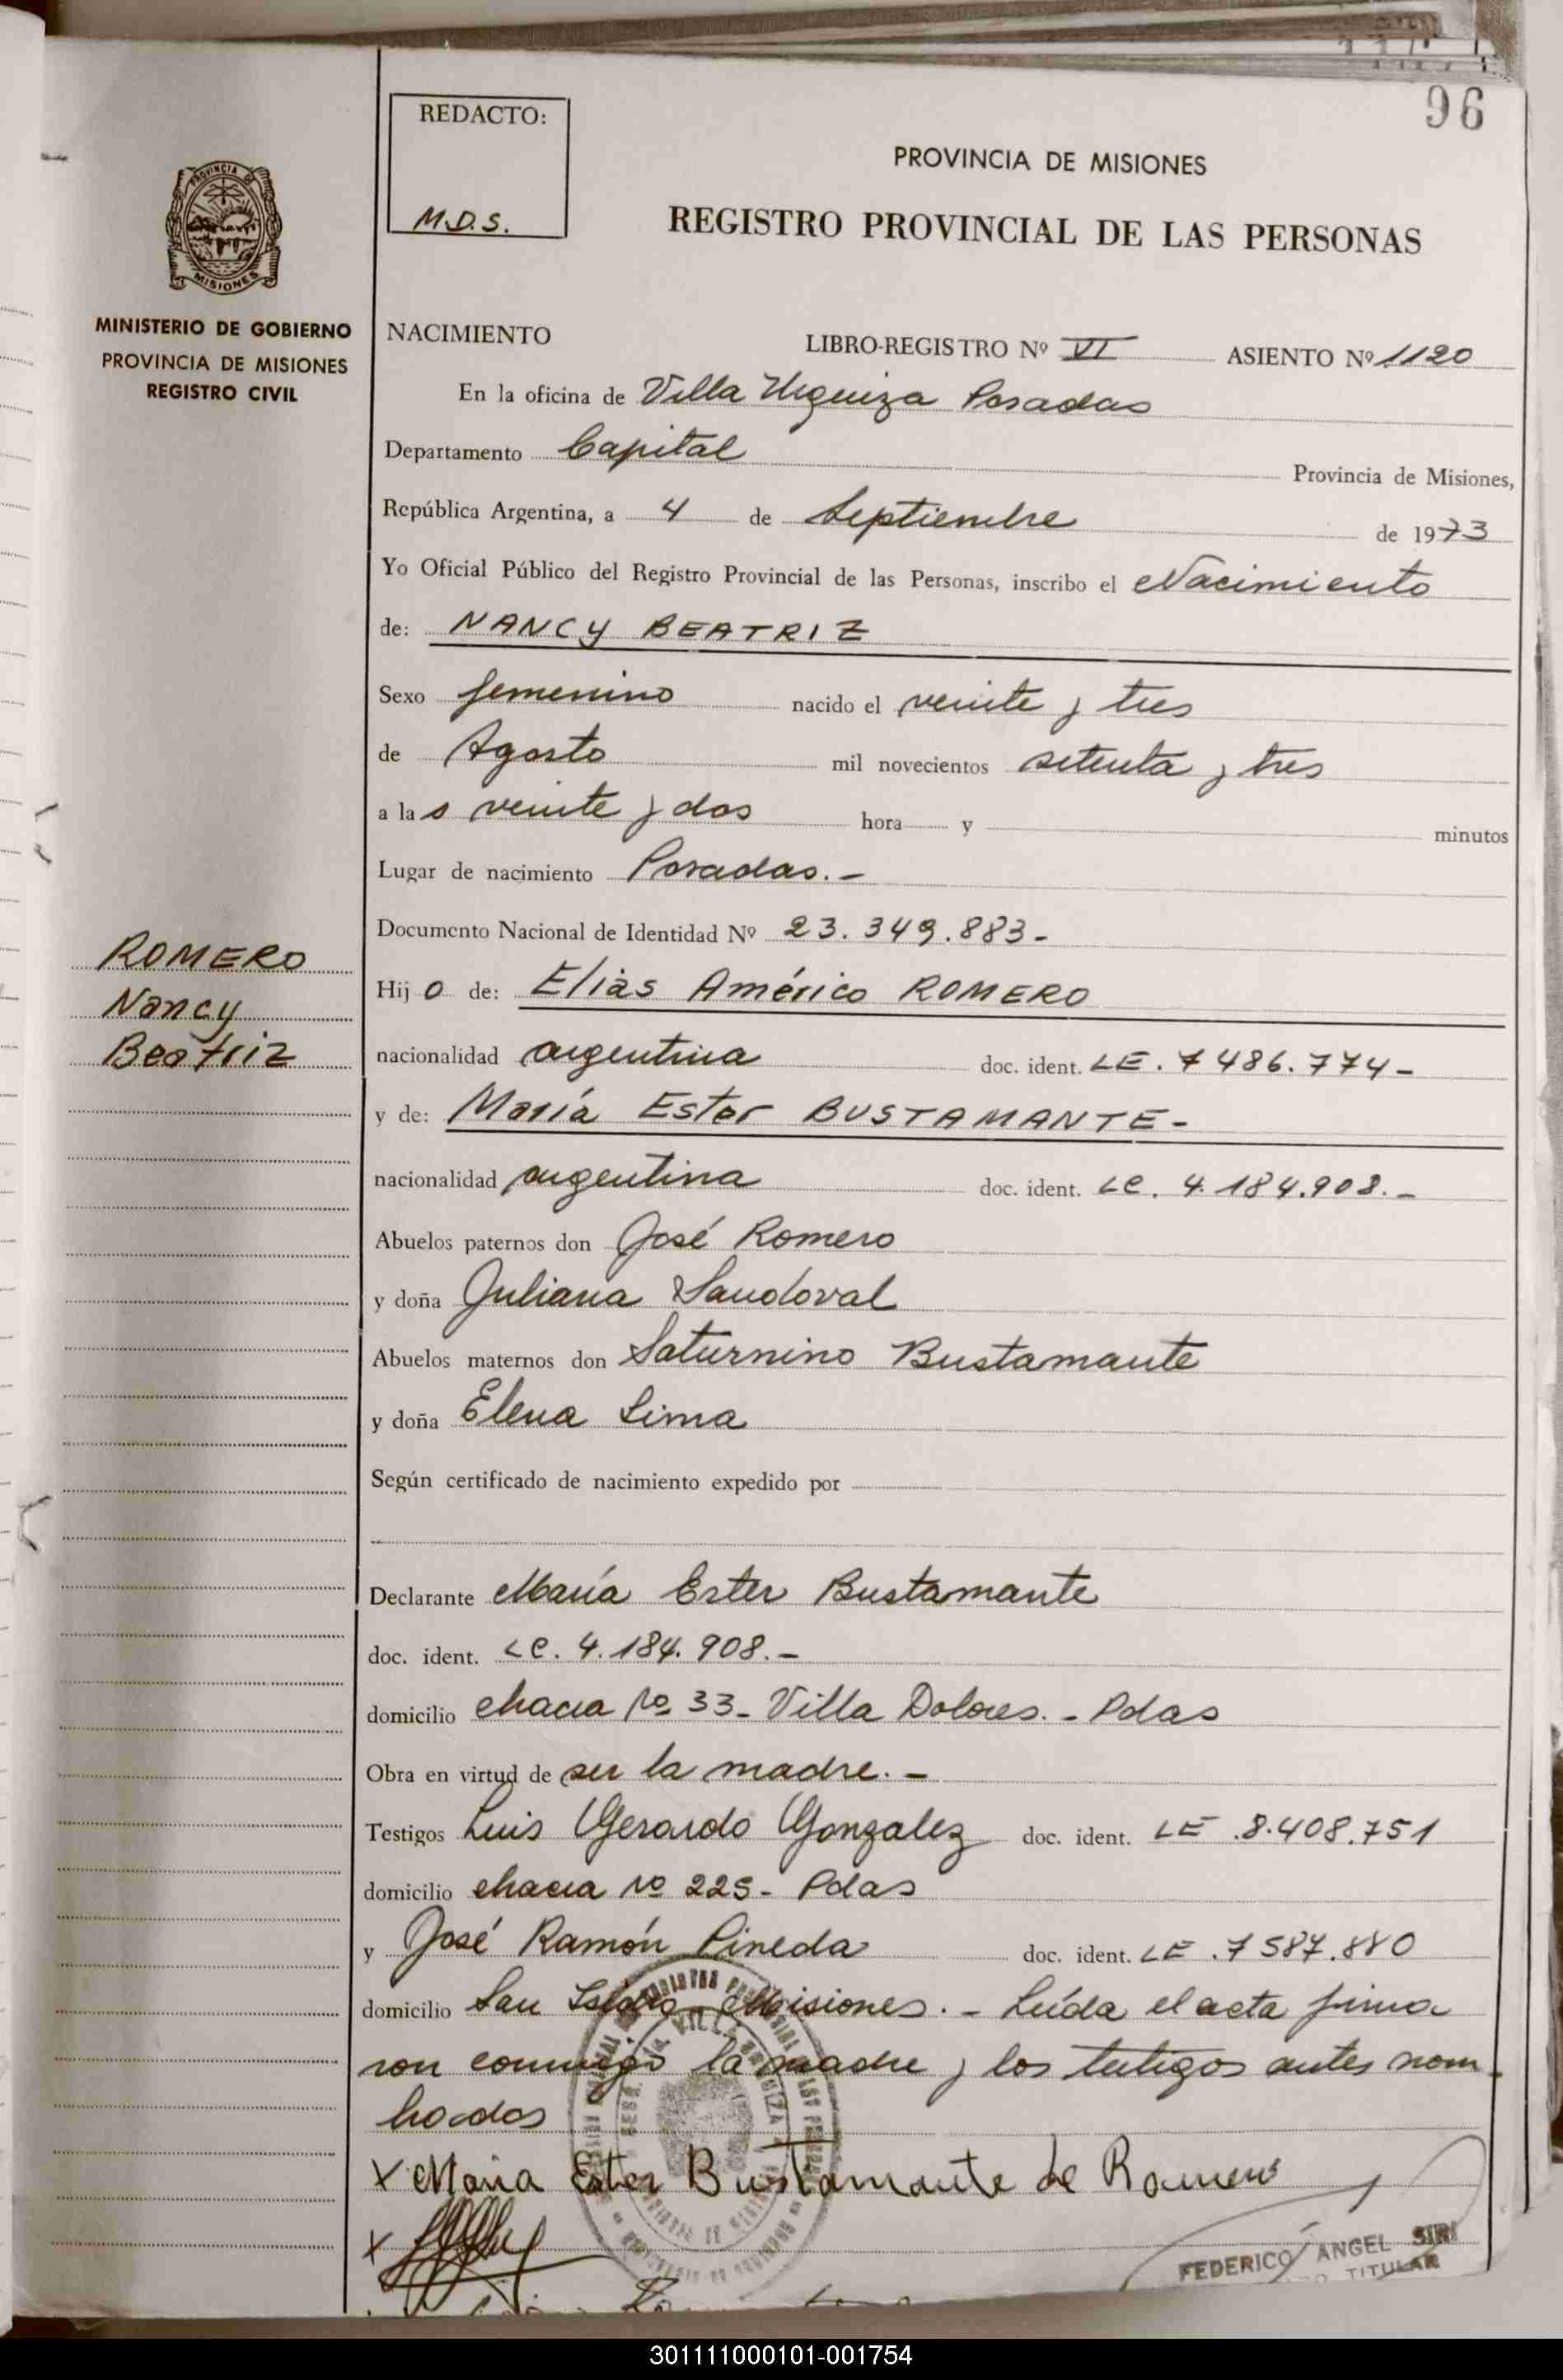 96
REDACTO:
M.D.S.
PROVINCIA DE MISIONES
REGISTRO PROVINCIAL DE LAS PERSONAS
PROVINCIA DE
MISIONES
MINISTERIO DE GOBIERNO
PROVINCIA DE MISIONES
REGISTRO CIVIL
NACIMIENTO LIBRO-REGISTRO Nº VI ASIENTO Nº 1120
En la oficina de Villa Urquiza Posadas
Departamento Capital Provincia de Misiones,
República Argentina, a 4 de Septiembre de 1973
Yo Oficial Público del Registro Provincial de las Personas, inscribo el Nacimiento
de: NANCY BEATRIZ
Sexo femenino nacido el veinte y tres
de Agosto mil novecientos setenta y tres
a las veinte y dos hora y minutos
Lugar de nacimiento Posadas.-
Documento Nacional de Identidad Nº 23.349.883-
ROMERO
Nancy
Beatriz
Hijo de: Elias Américo ROMERO
nacionalidad argentina doc. ident. LE. 7486.774-
y de: María Ester BUSTAMANTE-
nacionalidad argentina doc. ident. LC. 4.184.908.-
Abuelos paternos don José Romero
y doña Juliana Sandoval
Abuelos maternos don Saturnino Bustamante
y doña Elena Lima
Según certificado de nacimiento expedido por
Declarante María Ester Bustamante
doc. ident. LC. 4.184.908.-
domicilio chacra Nº 33- Villa Dolores.- Pdas
Obra en virtud de ser la madre.-
Testigos Luis Gerardo Gonzalez doc. ident. LE .8.408.751
domicilio chacra Nº 225- Pdas
y José Ramón Pineda doc. ident. LE .7587.880
domicilio San Isidro - Misiones.- Leída el acta firma
ron conmigo la madre y los testigos antes nom-
brados
x María Ester Bustamante de Romero
x
FEDERICO ANGEL SIRI
TITULAR
301111000101-001754